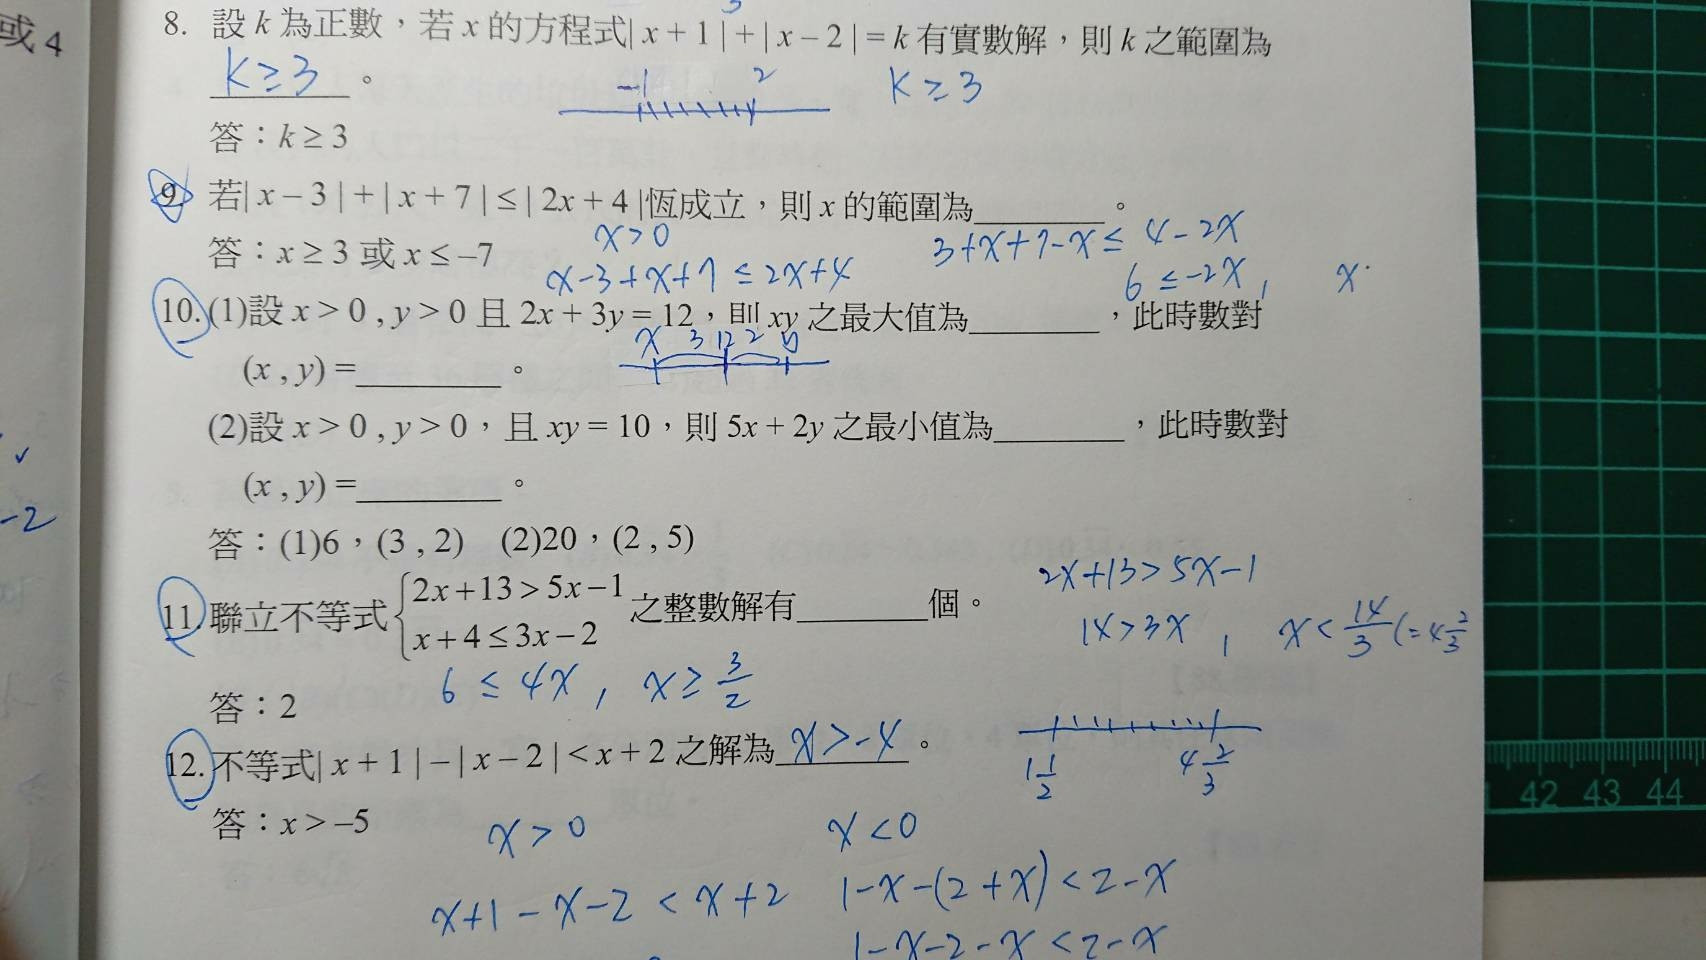 或 4
8. 設 k 為正數，若 x 的方程式| x + 1 | + | x – 2 | = k 有實數解，則 k 之範圍為
k ≥ 3 。
-1 2
k ≥ 3
答：k ≥ 3
9. 若| x – 3 | + | x + 7 | ≤ | 2x + 4 |恆成立，則 x 的範圍為________。
答：x ≥ 3 或 x ≤ –7
x>0
x-3+x+7 ≤ 2x+4
3+x+7-x ≤ 4-2x
6 ≤ -2x, x
10. (1)設 x > 0 , y > 0 且 2x + 3y = 12，則 xy 之最大值為________，此時數對
x 3 12 2 y
(x , y) =_________。
(2)設 x > 0 , y > 0，且 xy = 10，則 5x + 2y 之最小值為________，此時數對
(x , y) =_________。
答：(1)6，(3 , 2) (2)20，(2 , 5)
11. 聯立不等式 { 2x + 13 > 5x – 1
x + 4 ≤ 3x – 2 之整數解有________個。
2x+13>5x-1
14>3x, x<14/3 (=4 2/3
6 ≤ 4x, x ≥ 3/2
答：2
1 1/2 4 2/3
12. 不等式| x + 1 | – | x – 2 | < x + 2 之解為 x>-4 。
答：x > –5
x > 0
x+1-x-2 < x+2
x <0
1-x-(2+x) <2-x
1-x-2-x <2-x
-2
42 43 44